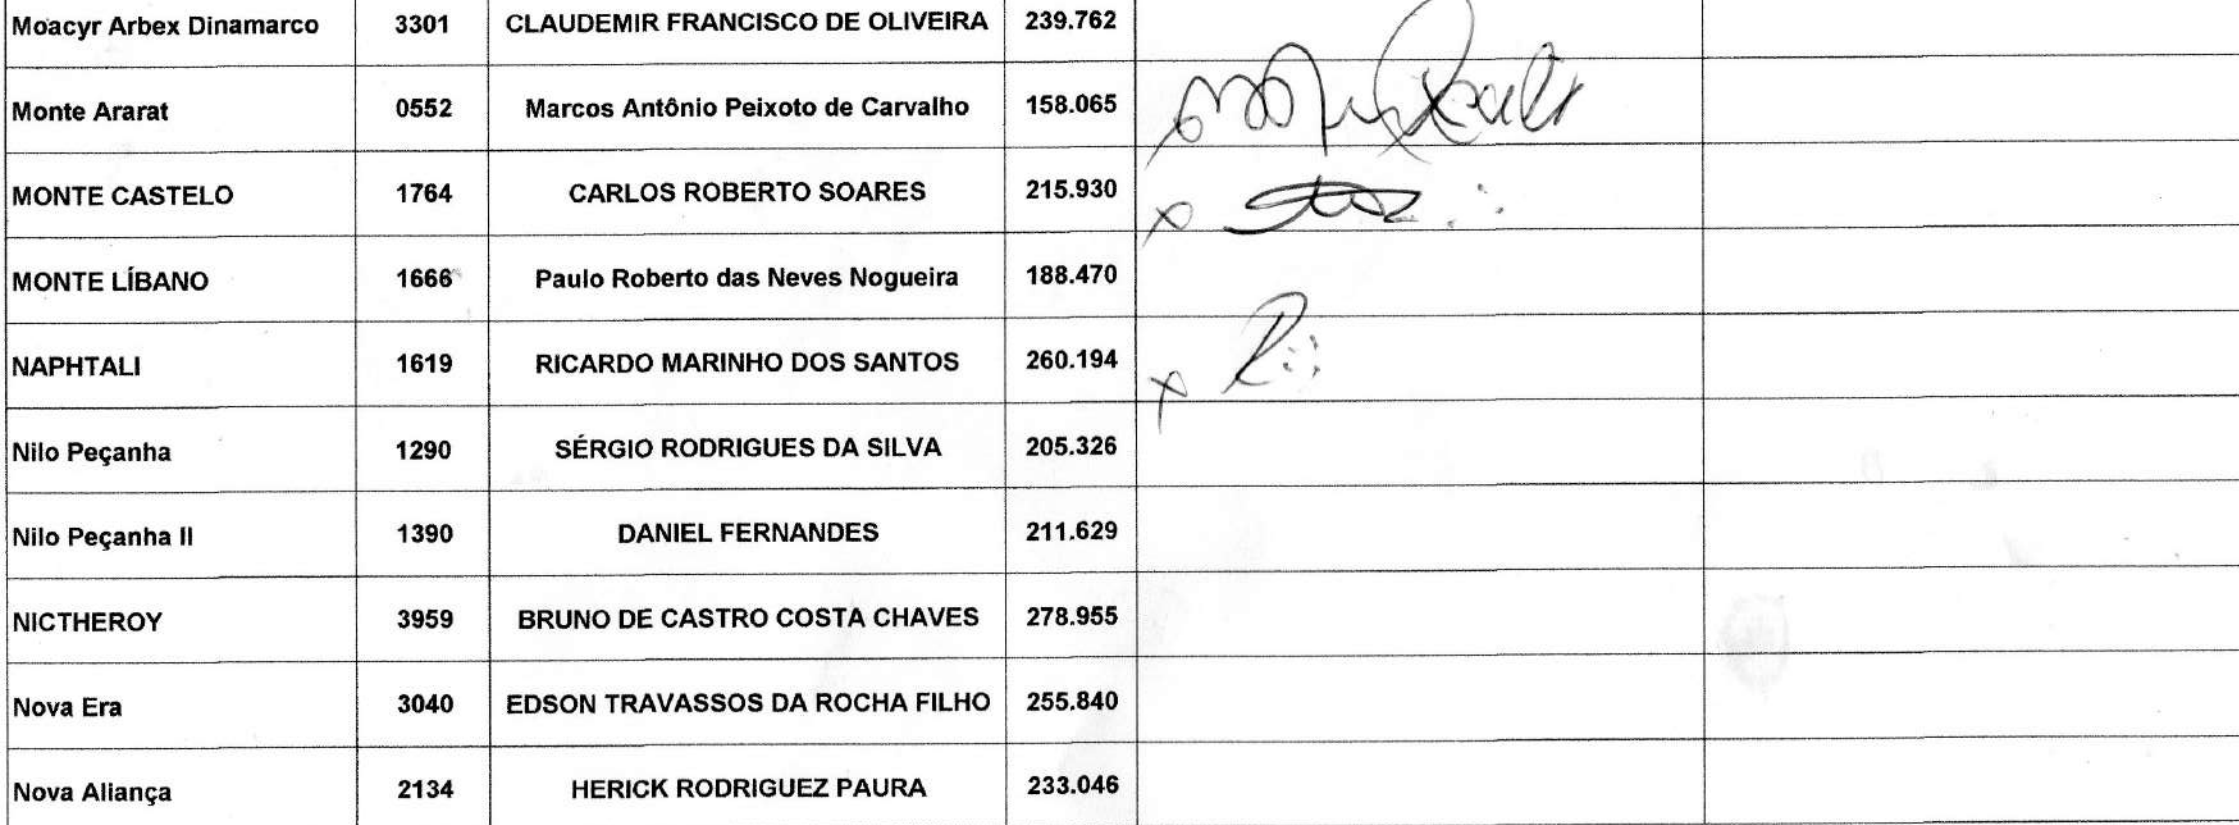 Moacyr Arbex Dinamarco 3301 CLAUDEMIR FRANCISCO DE OLIVEIRA 239.762
Monte Ararat 0552 Marcos Antônio Peixoto de Carvalho 158.065
MONTE CASTELO 1764 CARLOS ROBERTO SOARES 215.930
MONTE LÍBANO 1666 Paulo Roberto das Neves Nogueira 188.470
NAPHTALI 1619 RICARDO MARINHO DOS SANTOS 260.194
Nilo Peçanha 1290 SÉRGIO RODRIGUES DA SILVA 205.326
Nilo Peçanha II 1390 DANIEL FERNANDES 211.629
NICTHEROY 3959 BRUNO DE CASTRO COSTA CHAVES 278.955
Nova Era 3040 EDSON TRAVASSOS DA ROCHA FILHO 255.840
Nova Aliança 2134 HERICK RODRIGUEZ PAURA 233.046